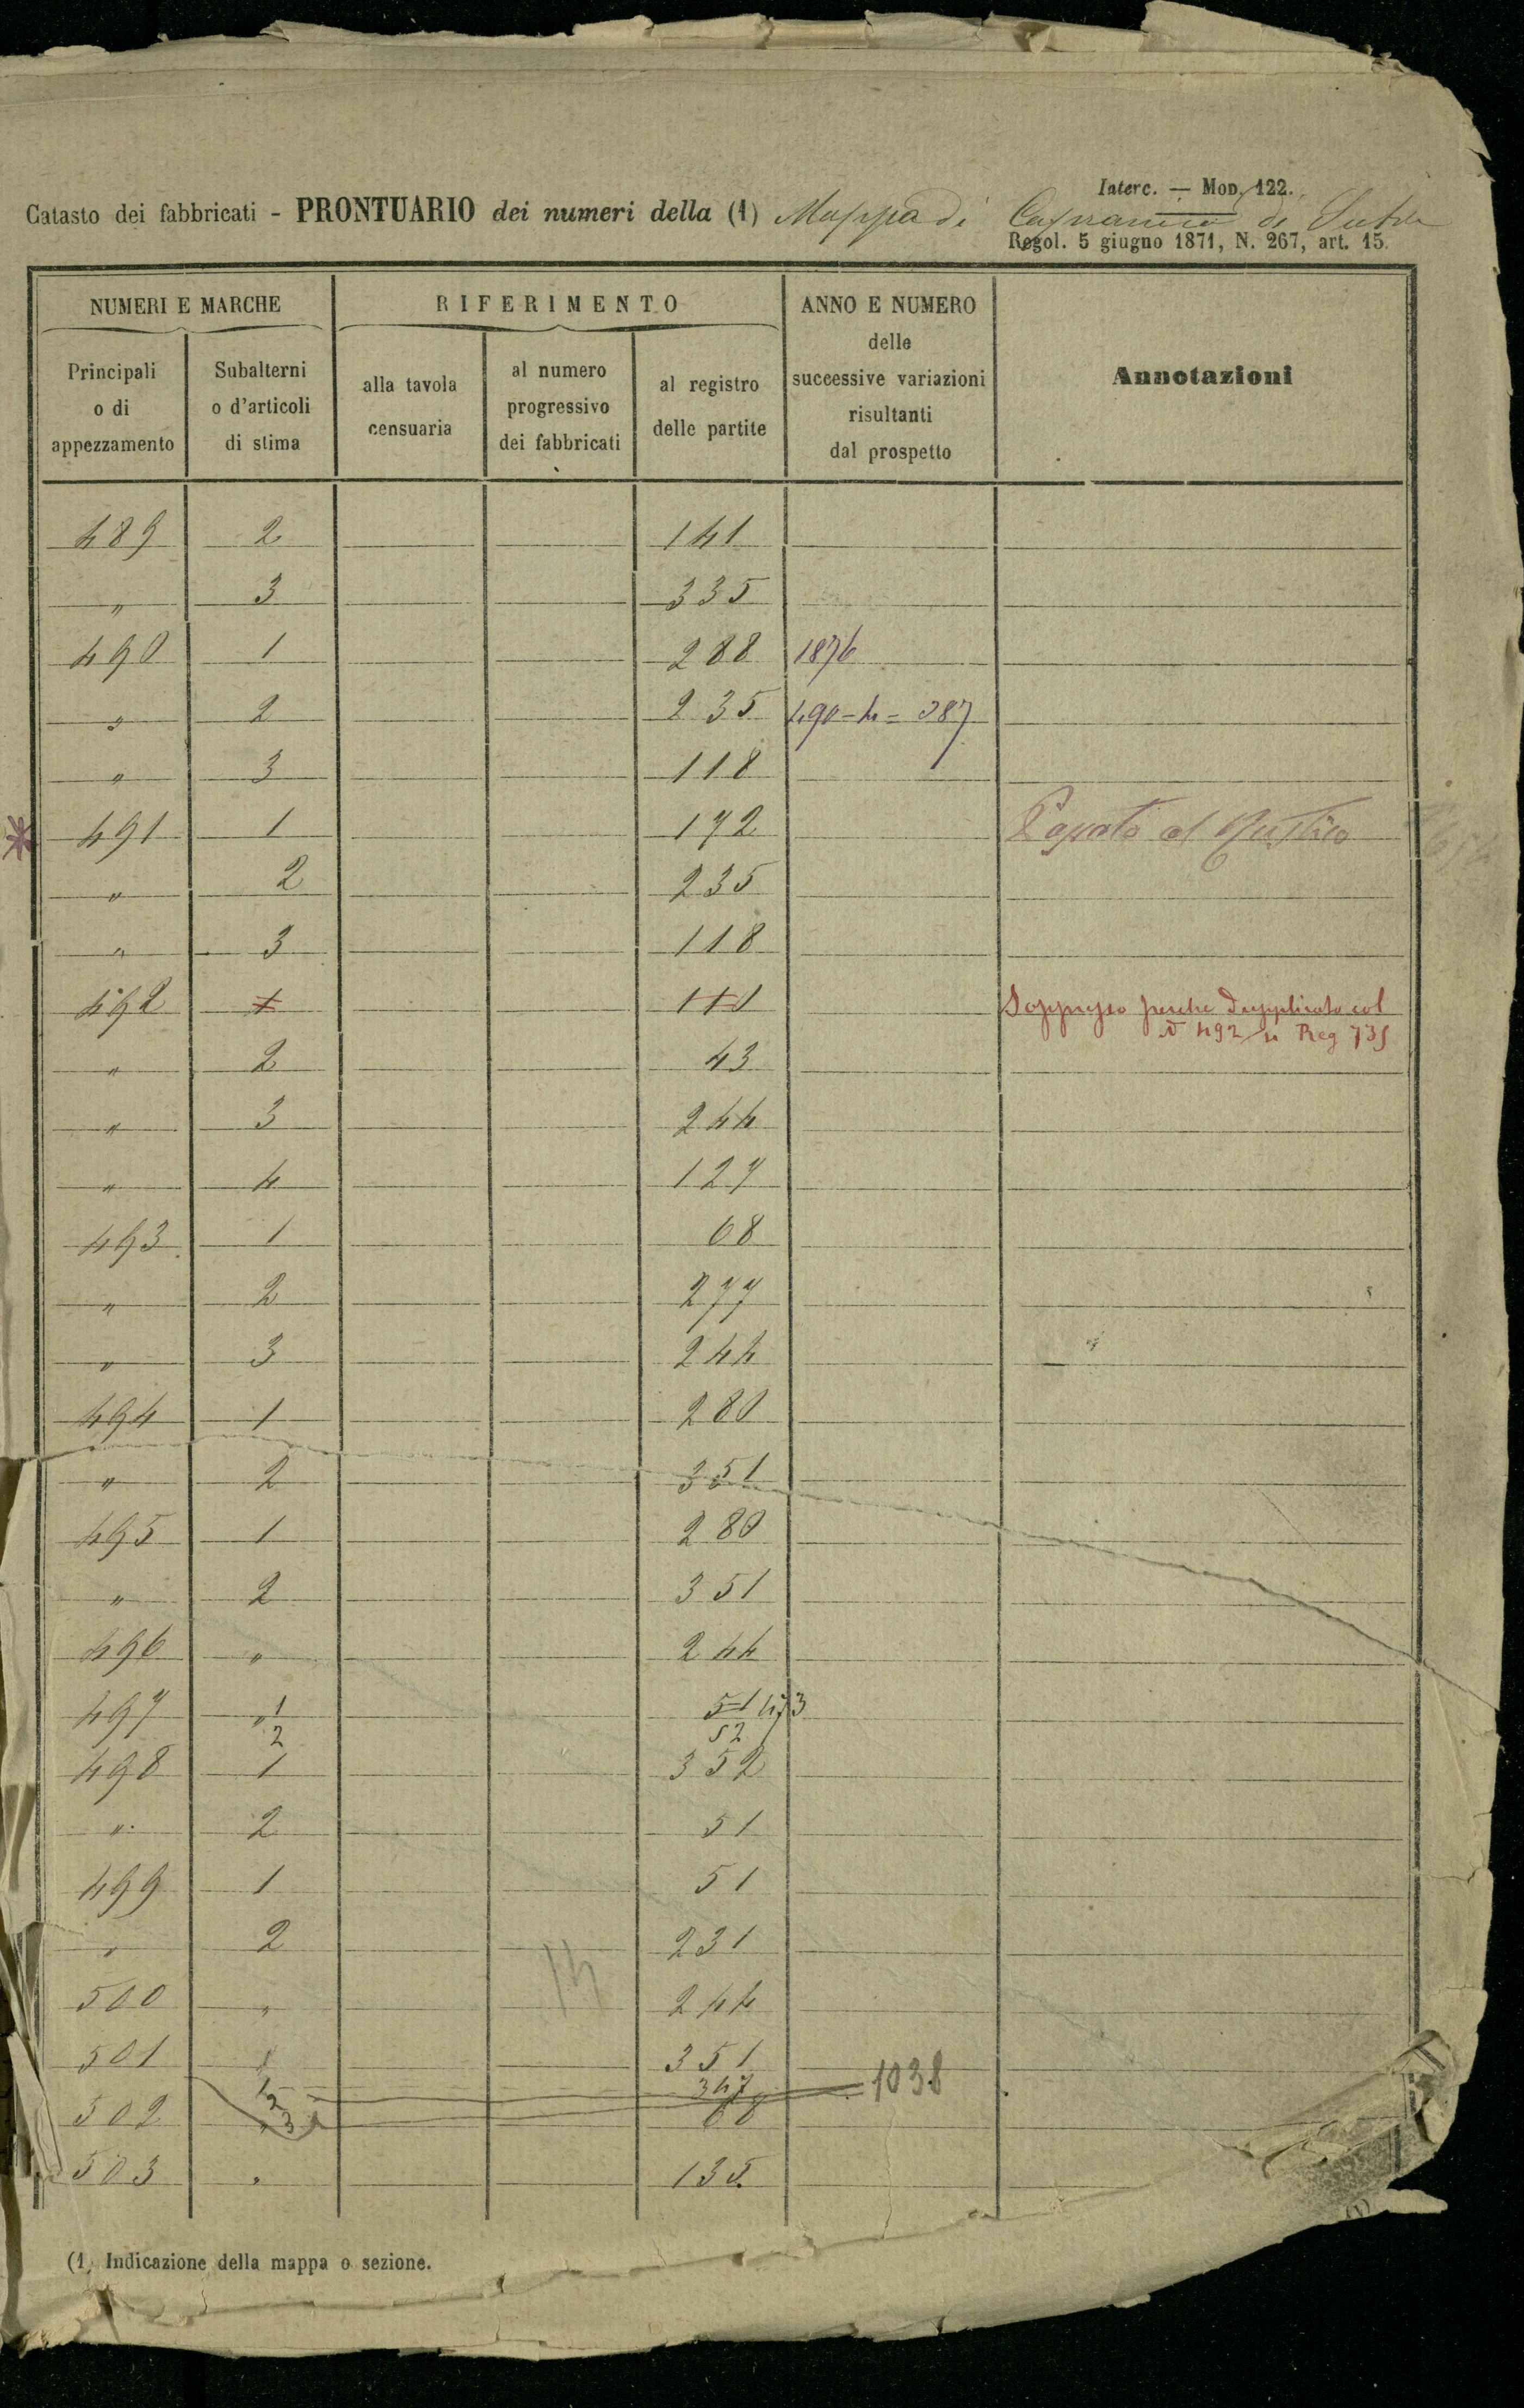 Interc. — Mod. 122.
Catasto dei fabbricati - PRONTUARIO dei numeri della (1) Mappa di Capranica di Sutri
Regol. 5 giugno 1871, N. 267, art. 15.
NUMERI E MARCHE RIFERIMENTO ANNO E NUMERO delle successive variazioni risultanti dal prospetto Annotazioni
Principali o di appezzamento Subalterni o d'articoli di stima alla tavola censuaria al numero progressivo dei fabbricati al registro delle partite
489 2 141
" 3 335
490 1 288 1876
" 2 235 490-4= 387
" 3 118
491 1 172 Passato al Rustico
" 2 235
" 3 118
492 1 110 Soppresso perche dupplicato col
N 492/4 Reg 735
" 2 43
" 3 244
" 4 127
493 1 68
" 2 277
" 3 244
494 1 280
" 2 351
495 1 280
" 2 351
496 " 244
497 " 1 51 473
2 52
498 1 352
" 2 51
499 1 51
" 2 231
14
500 " 244
501 351
1 347 1038
2
502 " 3 68
503 " 135
(1) Indicazione della mappa o sezione.